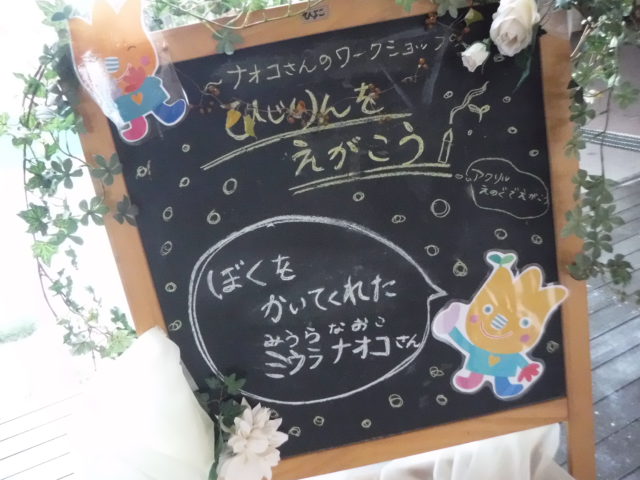 ～ナオコさんのワークショップ～
ひじりんを
えがこう
アクリル
えのぐでえがこう
ぼくを
かいてくれた
みうら なおこ
ミウラ ナオコさん